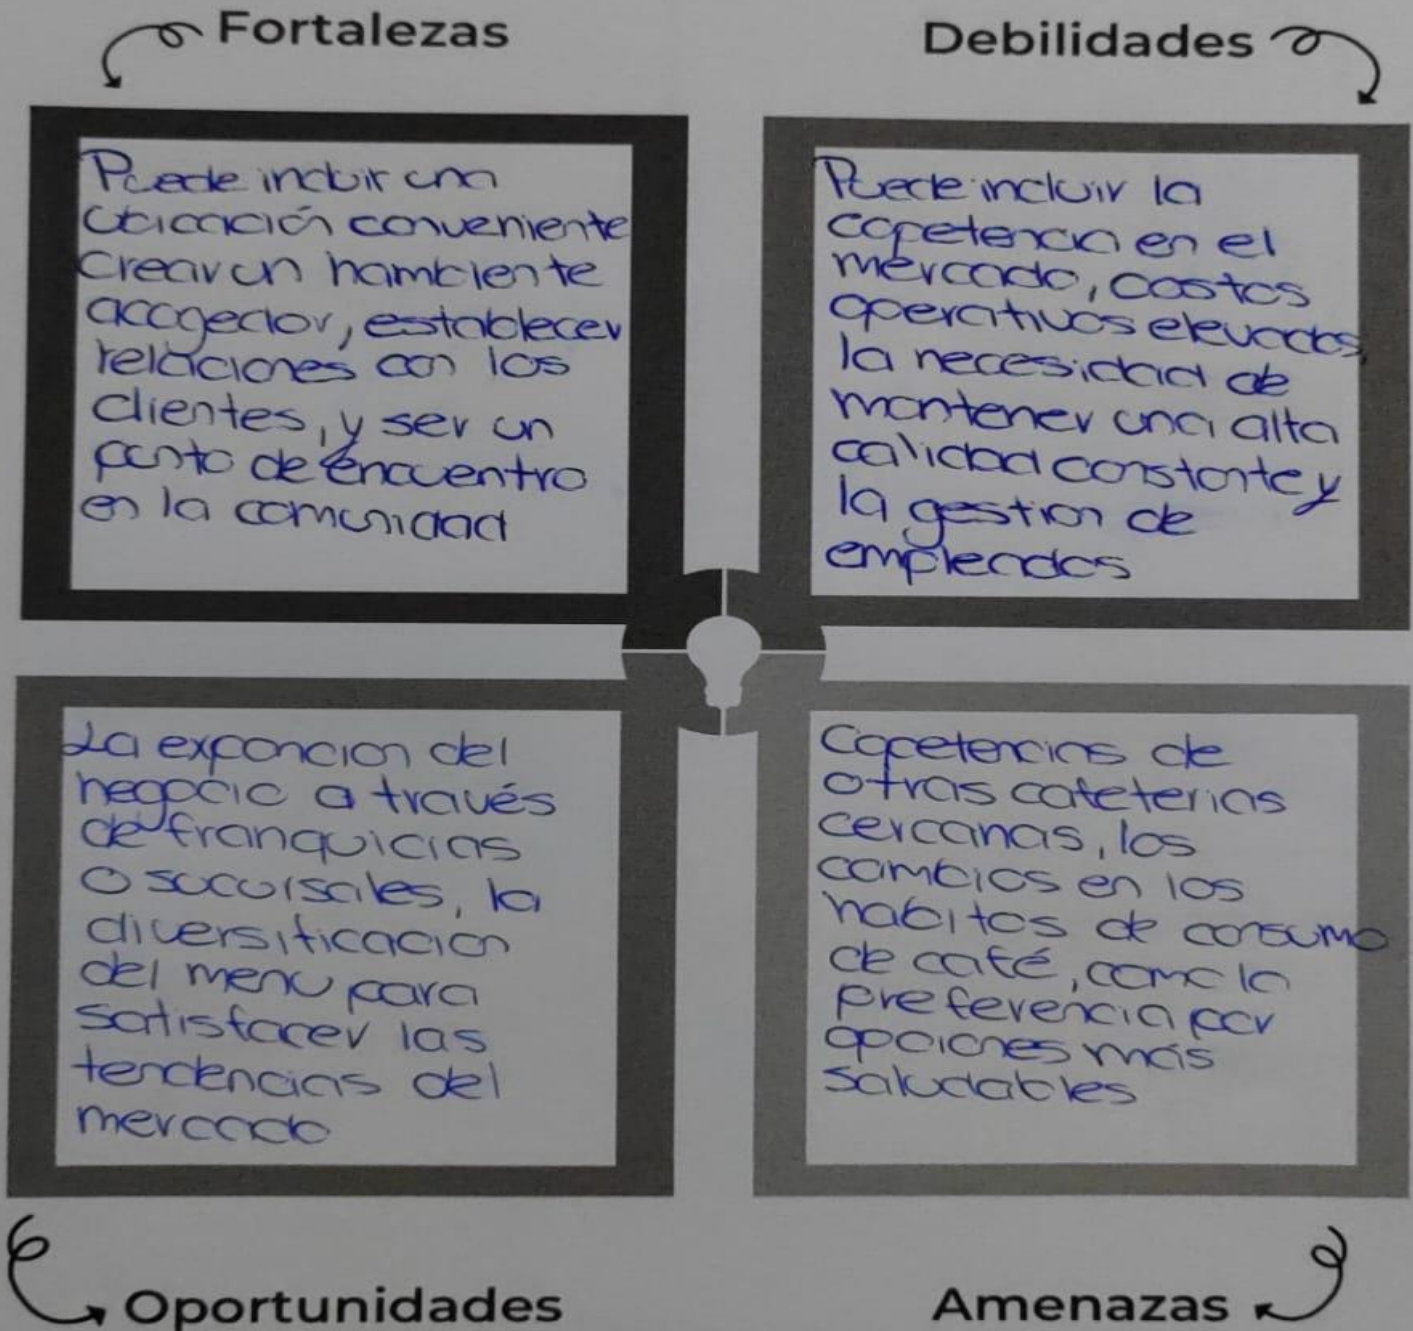 Fortalezas
Puede incluir una
Ubicación conveniente
Crear un hambiente
acogedor, establecer
relaciones con los
clientes, y ser un
punto de encuentro
en la comunidad
Debilidades
Puede incluir la
copetencia en el
mercado, costos
operativos elevados,
la necesidad de
mantener una alta
calidad constante y
la gestion de
empleados
La expancion del
negocio a través
de franquicias
o sucursales, la
diversificacion
del menu para
satisfacer las
tendencias del
mercado
Oportunidades
Copetencias de
otras cafeterias
cercanas, los
cambios en los
habitos de consumo
de café, como la
preferencia por
opciones más
saludables
Amenazas